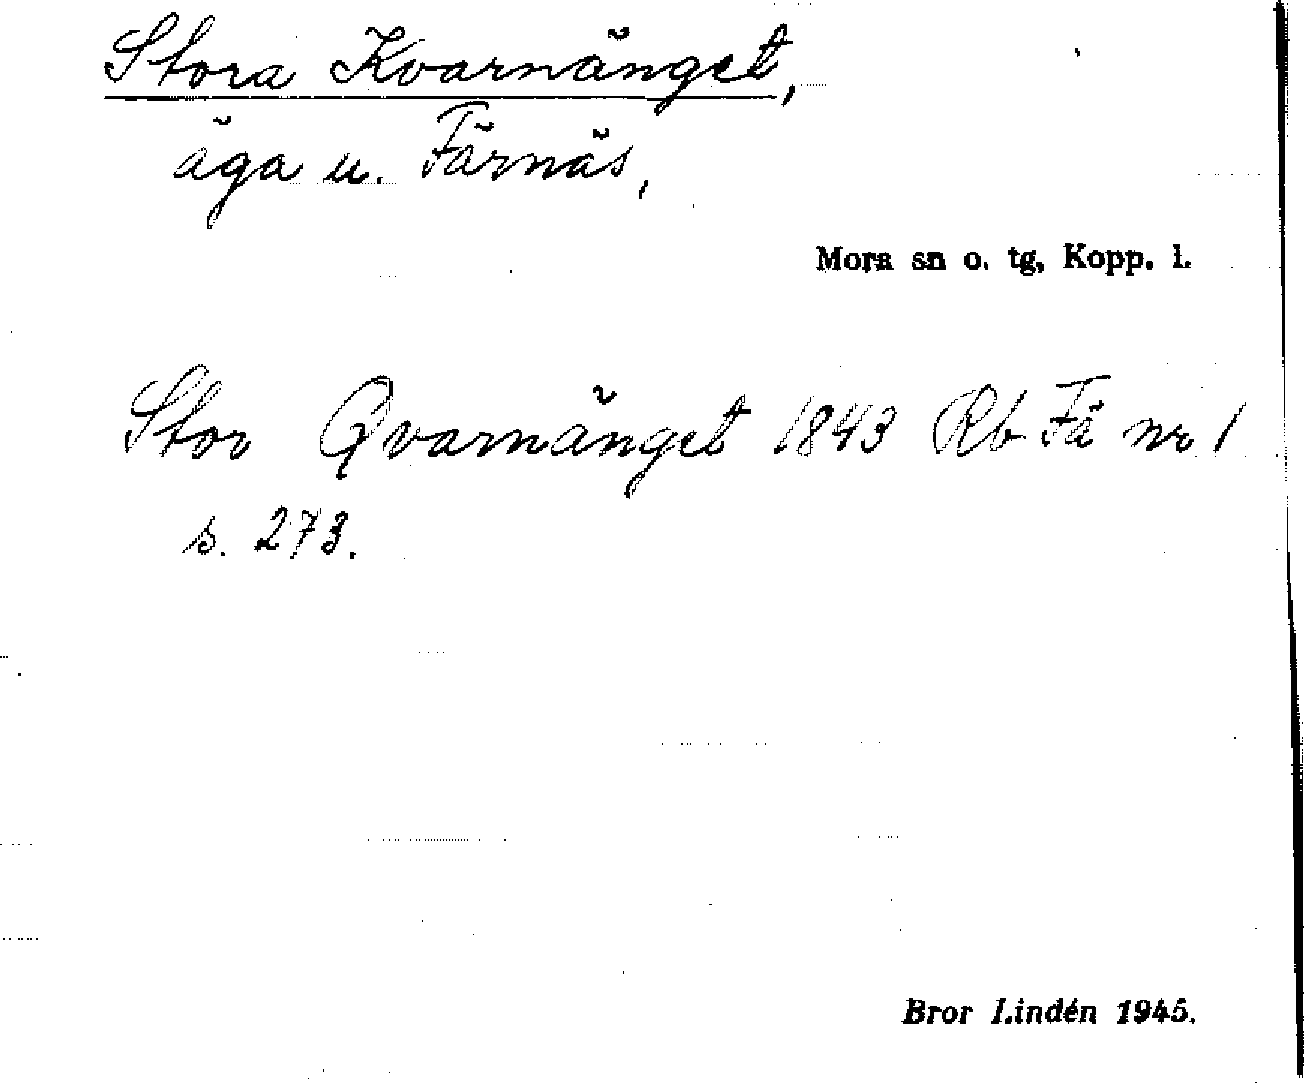 Stora Kvarnänget,
äga u. Färnäs,
Mora sn o. tg, Kopp. l.
Stor Qvarnänget 1843 Rb Fä nr 1
s. 273.
Bror Lindén 1945.